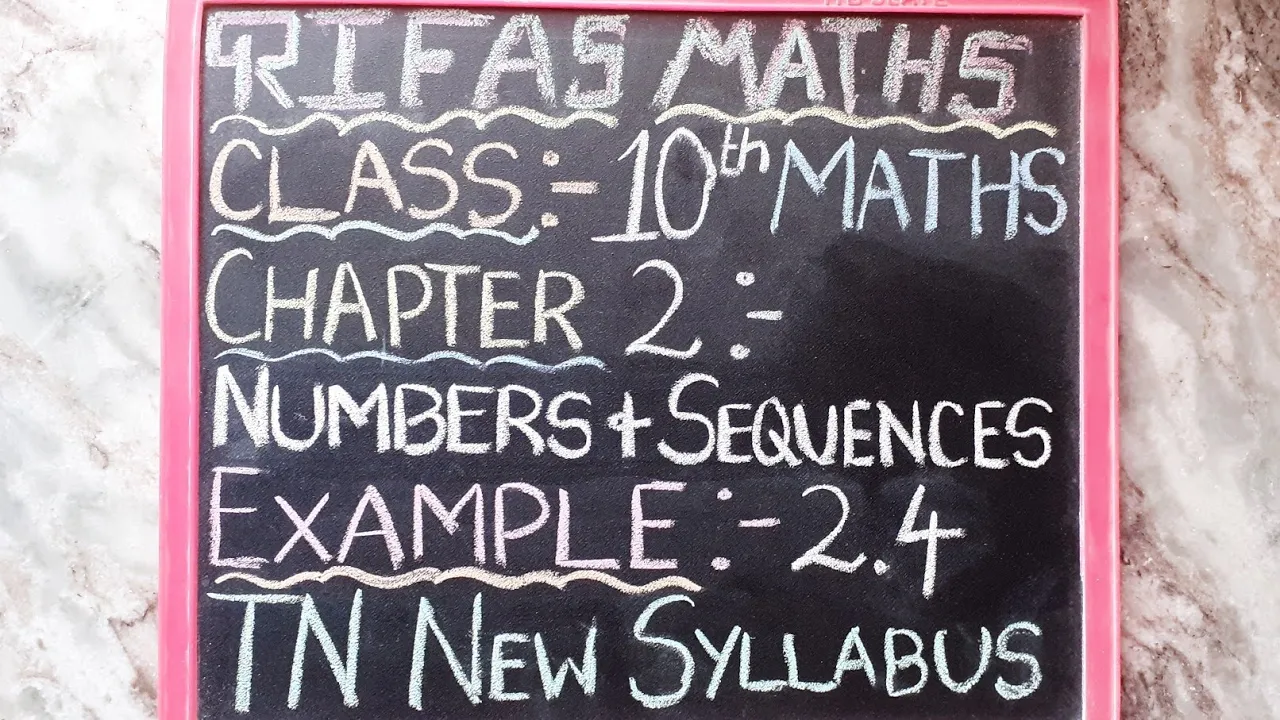 RIFAS MATHS
CLASS:- 10th MATHS
CHAPTER 2:-
NUMBERS + SEQUENCES
EXAMPLE:- 2.4
TN NEW SYLLABUS